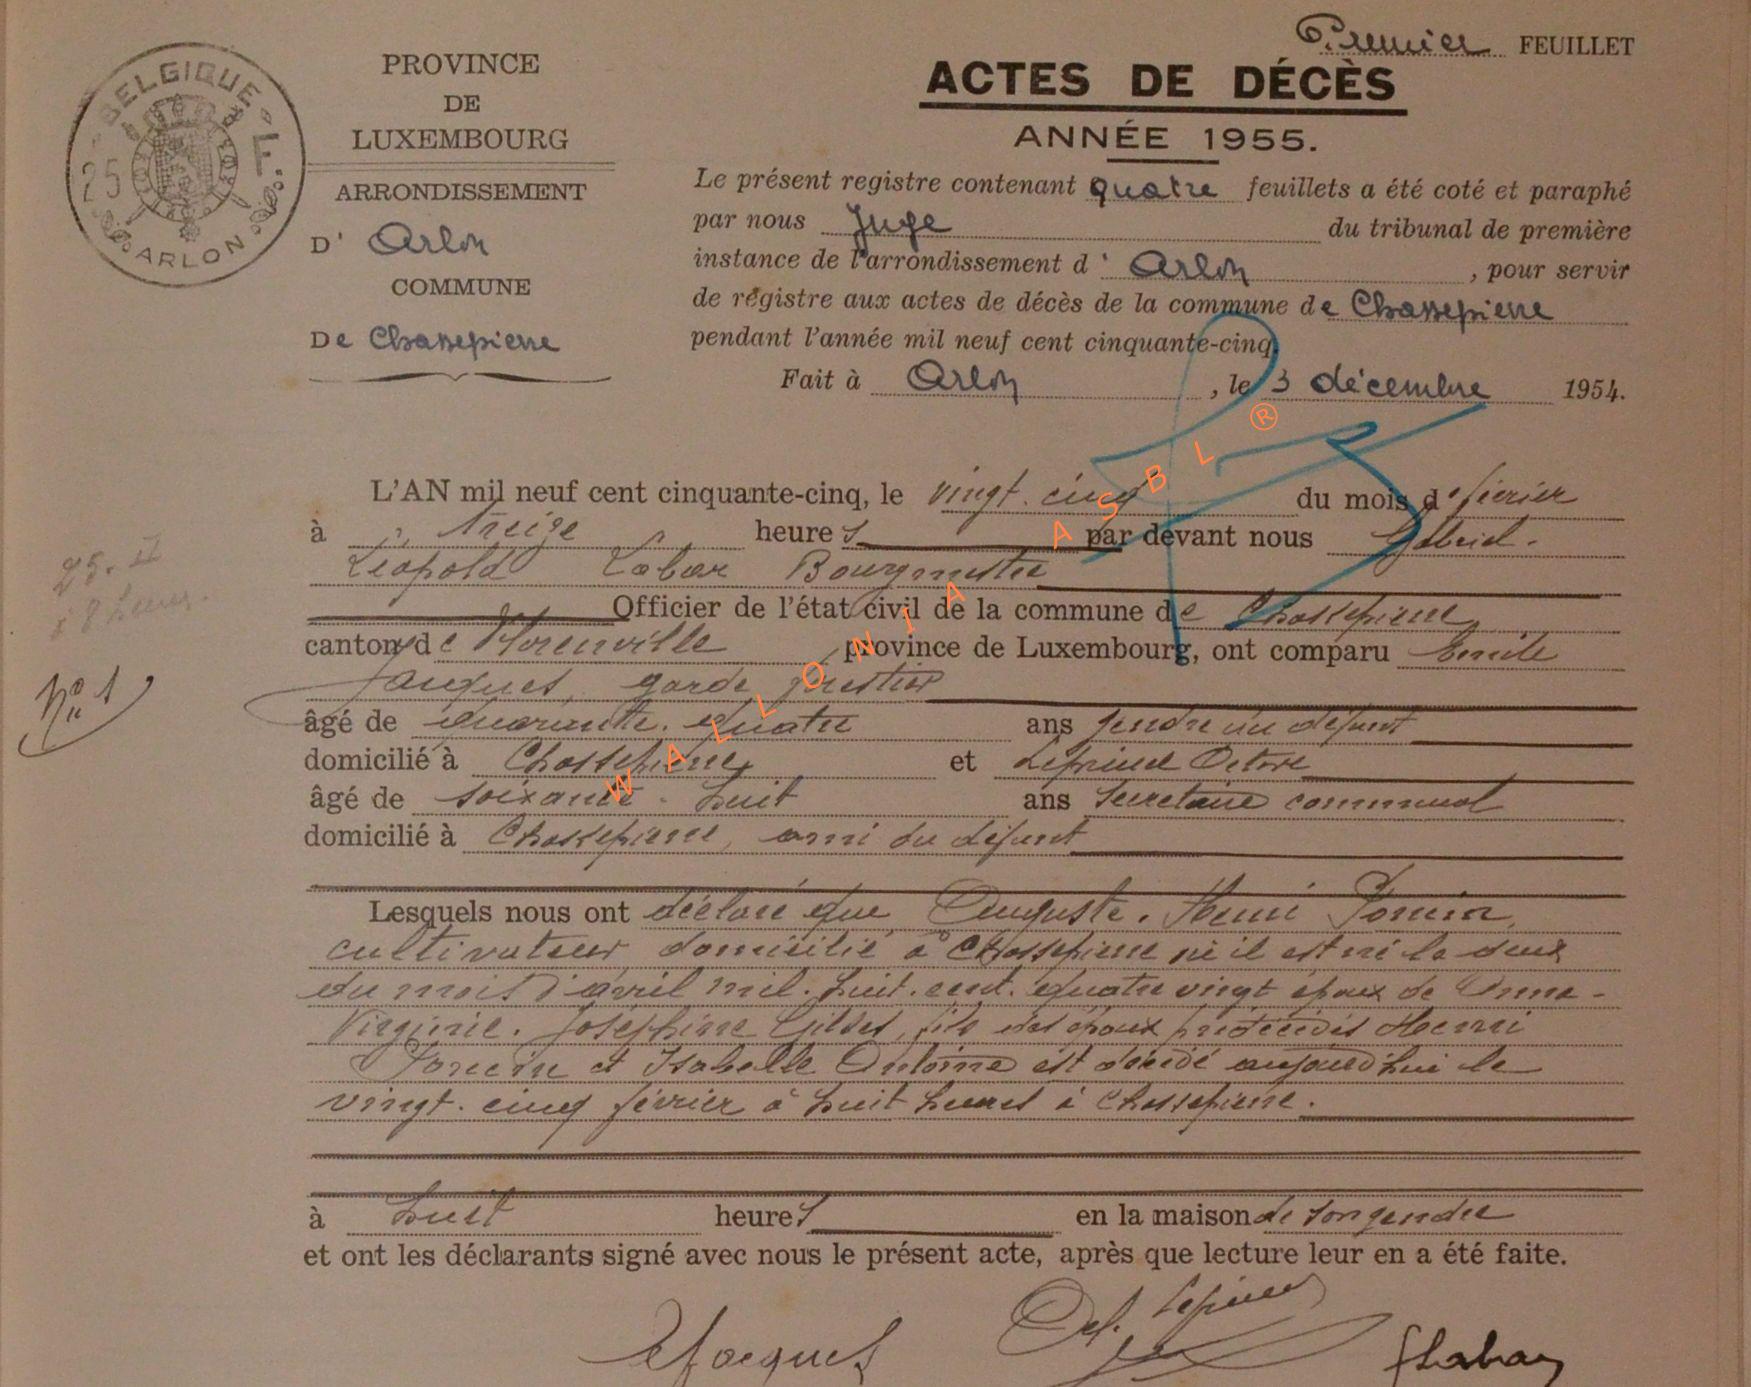 Premier FEUILLET
BELGIQUE
25 F
ARLON
PROVINCE
DE
LUXEMBOURG
ARRONDISSEMENT
D' Arlon
COMMUNE
De Chassepierre
ACTES DE DÉCÈS
ANNÉE 1955.
Le présent registre contenant quatre feuillets a été coté et paraphé
par nous Juge du tribunal de première
instance de l'arrondissement d' Arlon, pour servir
de régistre aux actes de décès de la commune de Chassepierre
pendant l'année mil neuf cent cinquante-cinq.
Fait à Arlon, le 3 décembre 1954.
25. II
à 8 heures.
No 1
L'AN mil neuf cent cinquante-cinq, le vingt-cinq du mois de février
à treize heures par devant nous Gabriel-
Léopold Labar Bourgmestre
Officier de l'état civil de la commune de Chassepierre
canton de Florenville province de Luxembourg, ont comparu Emile
Jacques, garde forestier
âgé de quarante-quatre ans gendre du défunt
domicilié à Chassepierre et
âgé de soixante-huit ans secrétaire communal
domicilié à Chassepierre, ami du défunt
Lesquels nous ont déclaré que Auguste-Henri
cultivateur domicilié à Chassepierre où il est né le deux
du mois d'avril mil-huit-cent-quatre vingt époux de Anna-
Virginie-Joséphine fils des époux prédécédés Henri
et Isabelle Antoine est décédé aujourd'hui le
vingt-cinq février à huit heures à Chassepierre.
à huit heures en la maison de son gendre
et ont les déclarants signé avec nous le présent acte, après que lecture leur en a été faite.
EJacques
GLabar
WALLONIA ASBL ®